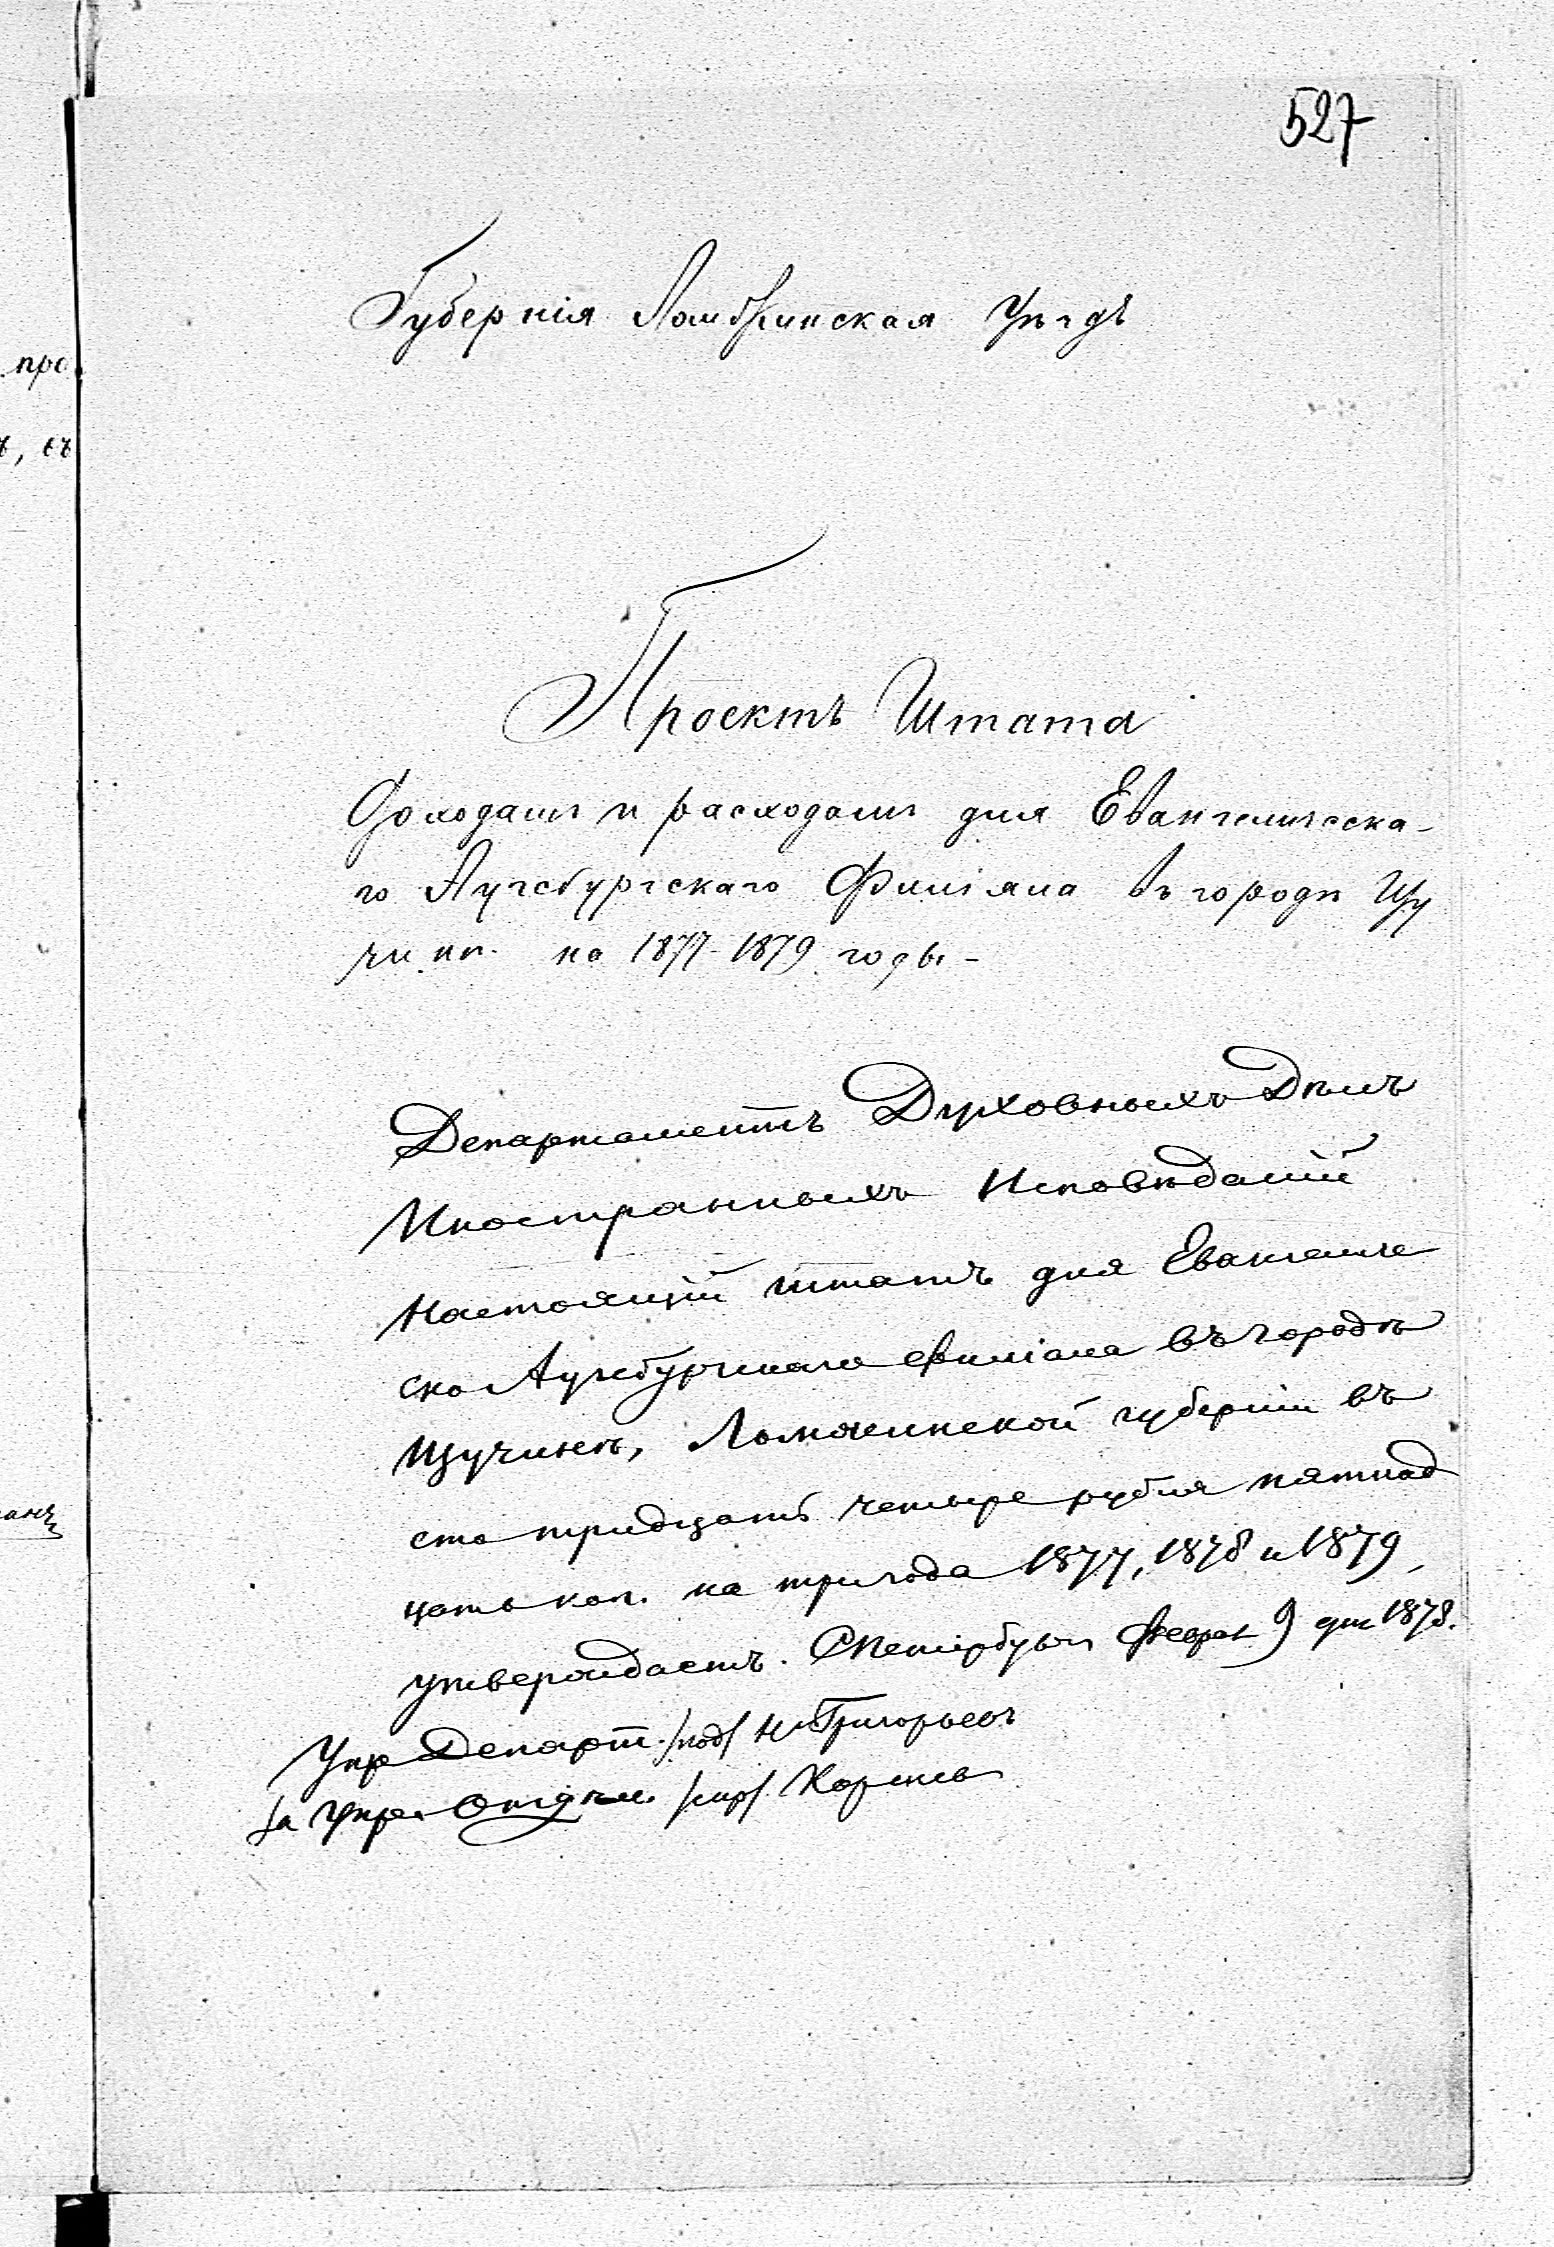 527
Губернія Ломжинская Уѣздъ
про
ъ, съ
Проектъ Штата
Доходамъ и расходамъ для Евангелическа-
го Аугсбургскаго Филіяла въ городѣ Щу
чинѣ. на 1877-1879 годы-
Департаментъ Духовныхъ Дѣлъ
Иностранныхъ Исповѣданій
настоящій штатъ для Евангеличе
ско Аугсбургскаго филіала въ городѣ
Щучинѣ, Ломжинской губерніи въ
сто тридцать четыре рубля пятнад
цать коп. на три года 1877, 1878 и 1879,
утверждаетъ. СПетербургъ Феврал 9 дня 1878.
Упр Департ. /под/ Григорьевъ
За Упр. Отдѣл. /скр/